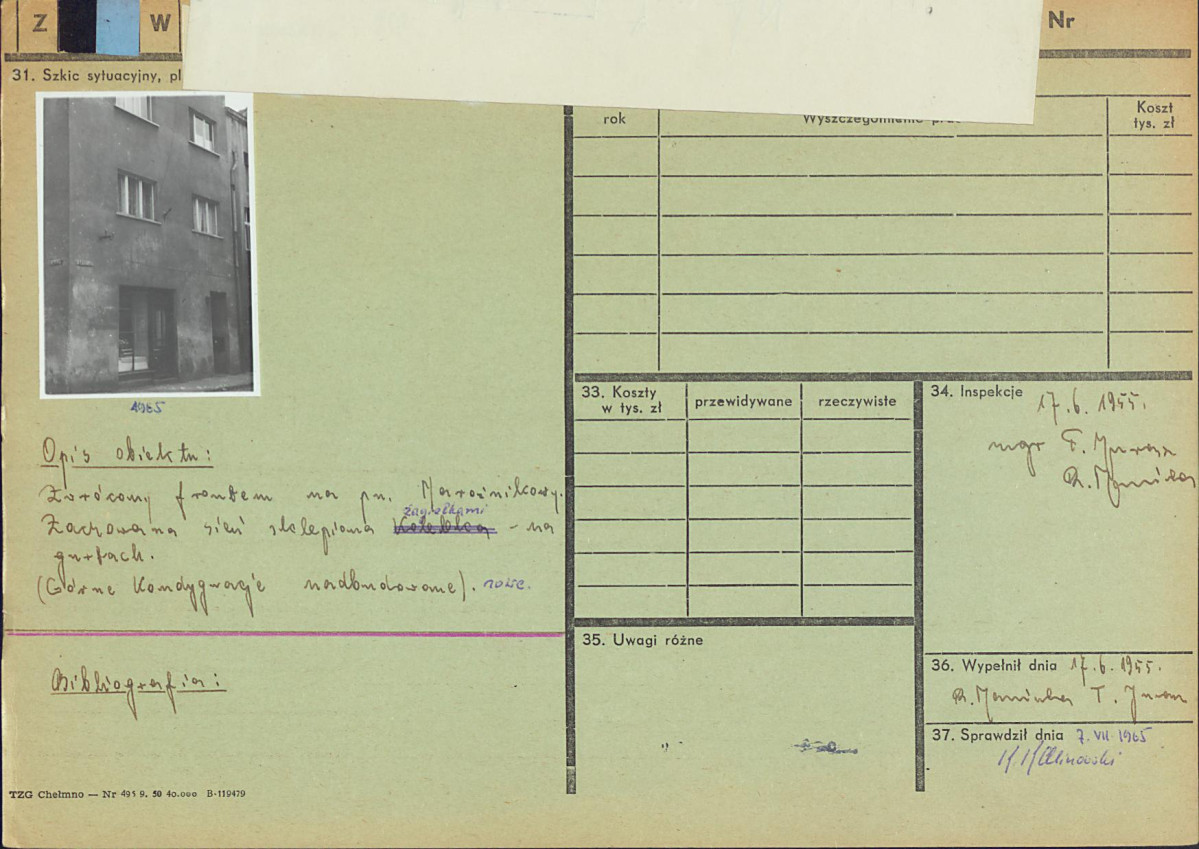 Z W Nr
31. Szkic sytuacyjny, pl
rok
Koszt
tys. zł
1965
Opis obiektu:
Zwrócony frontem na pn. Narożnikowy.
żagielkami
Zachowana sień sklepiona kolebką - na
gurtach.
(Górne kondygnacje nadbudowane). nowe.
Bibliografia:
33. Koszty
w tys. zł
przewidywane
rzeczywiste
34. Inspekcje
17.6.1955.
mgr T.
35. Uwagi różne
36. Wypełnił dnia 17.6.1955.
T.
37. Sprawdził dnia 7.VII.1965
TZG Chełmno — Nr 495 9. 50 40.000 B-119479